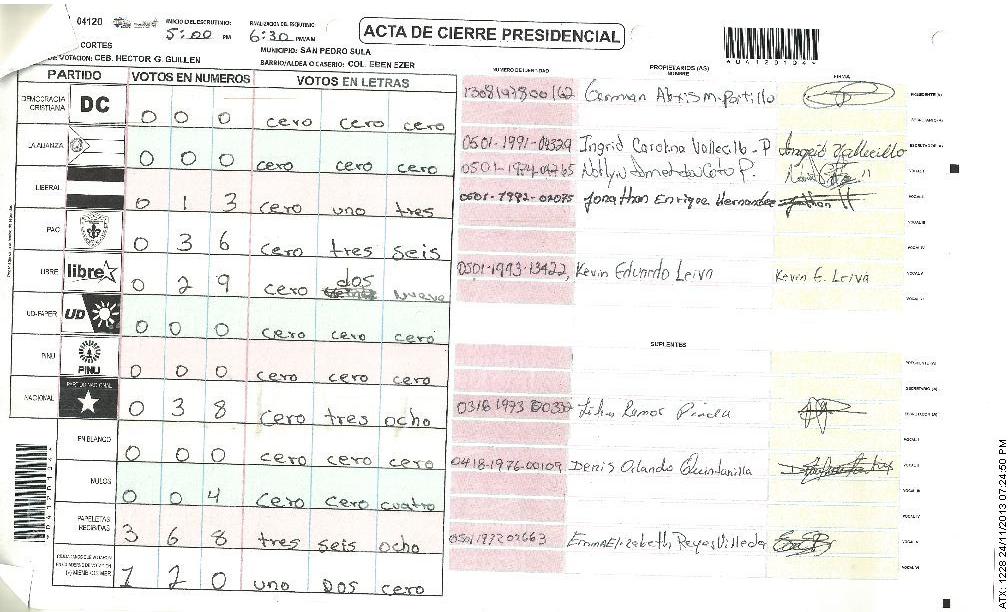 04120
INICIO DEL ESCRUTINIO: 5:00 PM
FINALIZACION DEL ESCRUTINIO: 6:30 PM/AM
ACTA DE CIERRE PRESIDENCIAL
CORTES
MUNICIPIO: SAN PEDRO SULA
DE VOTACION: CEB. HECTOR G. GUILLEN
BARRIO/ALDEA O CASERIO: COL. EBEN EZER
PARTIDO VOTOS EN NUMEROS VOTOS EN LETRAS
NUMERO DE IDENTIDAD PROPIETARIOS (AS) NOMBRE FIRMA
DEMOCRACIA CRISTIANA DC 0 0 0 cero cero cero
LA ALIANZA 0 0 0 cero cero cero
LIBERAL 0 1 3 cero uno tres
PAC 0 3 6 cero tres seis
LIBRE libre 0 2 9 cero dos nueve
UD-FAPER UD 0 0 0 cero cero cero
PINU PINU 0 0 0 cero cero cero
NACIONAL PARTIDO NACIONAL 0 3 8 cero tres ocho
EN BLANCO 0 0 0 cero cero cero
NULOS 0 0 4 cero cero cuatro
PAPELETAS RECIBIDAS 3 6 8 tres seis ocho
1 2 0 uno DOS cero
German Abxis M. Portillo PRESIDENTE (A)
SECRETARIO (A)
0501-1991-09329 Ingrid Carolina Vallecillo - P Ingrid Vallecillo ESCRUTADOR (A)
VOCAL I
0501-1992-02075 Jonathan Enrique Hernandez VOCAL II
VOCAL III
VOCAL IV
0501-1993-13422 Kevin Eduardo Leiva Kevin E. Leiva VOCAL V
VOCAL VI
SUPLENTES
PRESIDENTE (A)
SECRETARIO (A)
Ramos Pineda ESCRUTADOR (A)
VOCAL I
0418-1976-00109 Denis Orlando Quintanilla VOCAL II
VOCAL III
VOCAL IV
0501 1972 02663 Emma Elizabeth Reyes Villeda VOCAL V
VOCAL VI
ATX: 1228 24/11/2013 07:24:50 PM